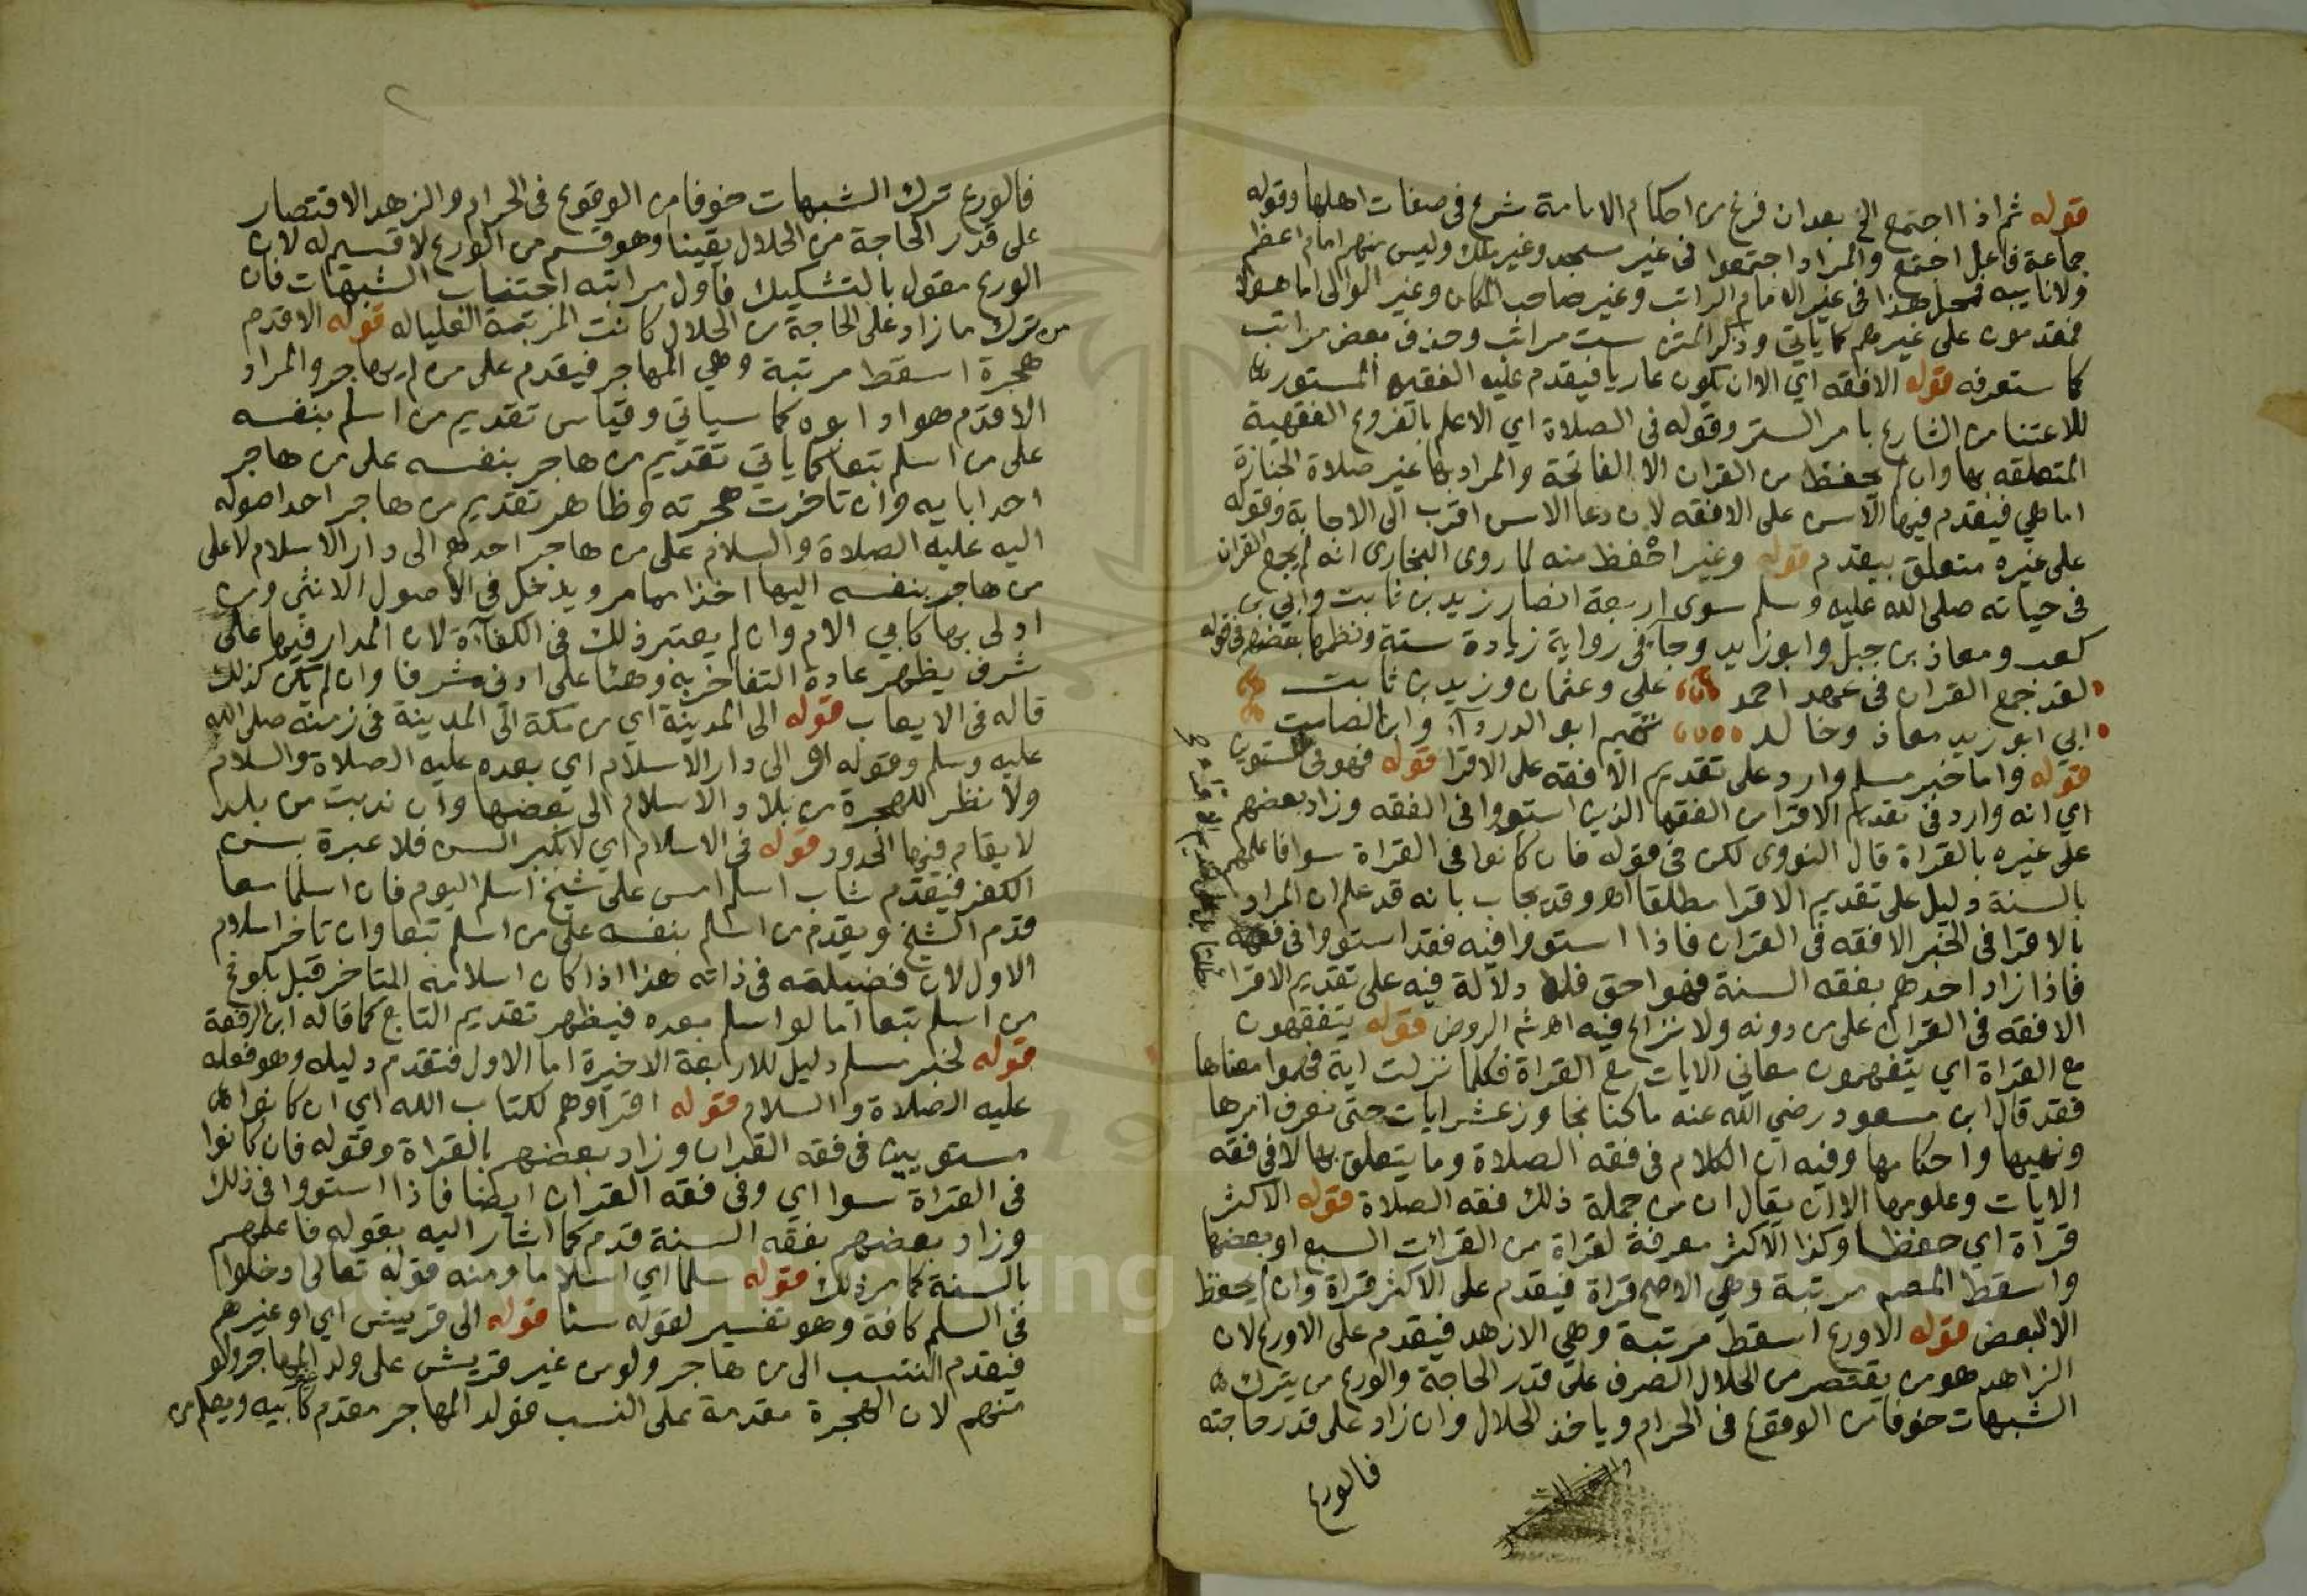 قوله ثم اذا اجتمع الخ بعد ان فرغ من احكام الامامة شرع في صفات اهلها وقوله
جماعة فاعل اجتمع والمراد اجتمعوا في غير مسجد وغير ملك وليس منهم امام اعظم
ولا نايبه فمحل هذا في غير الامام الراتب وغير صاحب المكان وغير الوالى اما هولا
فمقدمون على غيرهم كما ياتي وذكر المتن ست مراتب وحذف بعض مراتب
كما ستعرفه قوله الافقه اي الا ان يكون عاريا فيقدم عليه الفقيه المستور
للاعتنا من الشارع بامر الستر وقوله في الصلاة اي الاعلم بالفروع الفقهية
المتعلقه بها وان لم يحفظ من القران الا الفاتحة والمراد بها غير صلاة الجنازة
اما هي فيقدم فيها الاسن على الافقه لان دعا الاسن اقرب الى الاجابة وقوله
على غيره متعلق بيقدم قوله وغير احفظ منه لما روى البخارى انه لم يجمع القران
في حياته صلى الله عليه وسلم سوى اربعة انصار زيد بن ثابت وابي بن
كعب ومعاذ بن جبل وابو زايد وجآ في رواية زيادة ستة ونظمها بعضهم في قوله
لقد جمع القران في عهد احمد علي وعثمان وزيد بن ثابت
ابي ابو زيد معاذ وخالد تميم ابو الدردآء وابن الصامت
قوله واما خبر مسلم وارد على تقديم الافقه على الاقرا قوله فهو في المستوين
اي انه وارد في تقديم الاقرا من الفقها الذين استووا في الفقه وزاد بعضهم
على غيره بالقراة قال النووى لكن في قوله فان كانوا في القراة سوا فاعلمهم
بالسنة دليل على تقديم الاقرا مطلقا اه وقد يجاب بانه قد علم ان المراد
بالاقرا في الخبر الافقه في القران فاذا استووا فيه فقد استووا في فقهه
فاذا زاد احدهم بفقه السنة فهو احق فلا دلالة فيه على تقديم الاقرا
الافقه في القران على من دونه ولا نزاع فيه اه ش الروض قوله يتفقهون
مع القراة اي يتفهمون معاني الايات مع القراة فكلما نزلت اية فهموا معناها
فقد قال ابن مسعود رضي الله عنه ما كنا نجاوز عشر ايات حتى نعرف امرها
ونهيها واحكامها وفيه ان الكلام في فقه الصلاة وما يتعلق بها لا في فقه
الايات وعلومها الا ان يقال ان من جملة ذلك فقه الصلاة قوله الاكثر
قراة اي حفظا وكذا الاكثر معرفة لقراة من القرائت السبع او بعضها
واسقط المصم مرتبة وهي الاصح قراة فيقدم على الاكثر قراة وان لم يحفظ
الا البعض قوله الاورع اسقط مرتبة وهي الازهد فيقدم على الاورع لان
الزاهد هو من يقتصر من الحلال الصرف على قدر الحاجة والورع من يترك
الشبهات خوفا من الوقوع في الحرام وياخذ الحلال وان زاد على قدر حاجته
فالورع
فالورع ترك الشبهات خوفا من الوقوع في الحرام والزهد الاقتصار
على قدر الحاجة من الحلال يقينا وهو قسم من الورع لا قسيم له لان
الورع مقول بالتشكيك فاول مراتبه اجتناب الشبهات فان
من ترك ما زاد على الحاجة من الحلال كانت المرتبة العليا له قوله الاقدم
هجرة اسقط مرتبة وهي المهاجر فيقدم على من لم يهاجر والمراد
الاقدم هو او ابوه كما سياتي وقياس تقديم من اسلم بنفسه
على من اسلم بتعا كما ياتي تقديم من هاجر بنفسه على من هاجر
احد ابايه وان تاخرت هجرته وظاهر تقديم من هاجر احد اصوله
اليه عليه الصلاة والسلام على من هاجر احدهم الى دار الاسلام لا على
من هاجر بنفسه اليها اخذا مما مر ويدخل في الاصول الانثى ومن
ادلى بها كابي الام وان لم يعتبر ذلك في الكفآءة لان المدار فيها على
شرف يظهر عادة التفاخر به وهنا على ادنى شرف وان لم يكن كذلك
قاله في الايعاب قوله الى المدينة اي من مكة الى المدينة في زمنه صلى الله
عليه وسلم وقوله او الى دار الاسلام اي بعده عليه الصلاة والسلام
ولا نظر للهجرة من بلاد الاسلام الى بعضها وان ندبت من بلد
لا يقام فيها الحدود قوله في الاسلام اي لا بكبر السن فلا عبرة بسن
الكفر فيقدم شاب اسلم امس على شيخ اسلم اليوم فان اسلما معا
قدم الشيخ ويقدم من اسلم بنفسه على من اسلم تبعا وان تاخر اسلام
الاول لان فضيلته في ذاته هذا اذا كان اسلامه المتاخر قبل بلوغ
من اسلم تبعا اما لو اسلم بعده فيظهر تقديم التابع كما قاله ابن الرفعة
قوله لخبر مسلم دليل للاربعة الاخيرة اما الاول فتقدم دليله وهو فعله
عليه الصلاة والسلام قوله اقرآوهم لكتاب الله اي ان كانوا
مستويين في فقه القران وزاد بعضهم بالقراة وقوله فان كانوا
في القراة سوا اي وفي فقه القران ايضا فاذا استووا في ذلك
وزاد بعضهم بفقه السنة قدم كما اشار اليه بقوله فاعلمهم
بالسنة كما مر ذلك قوله سلما اي اسلاما ومنه قوله تعالى ادخلوا
في السلم كافة وهو تفسير لقوله سنا قوله الى قريش اي او غيرهم
فيقدم المنتسب الى من هاجر ولو من غير قريش على ولد المهاجر ولو
منهم لان الهجرة مقدمة على النسب فولد المهاجر مقدم كابيه ويعلم من